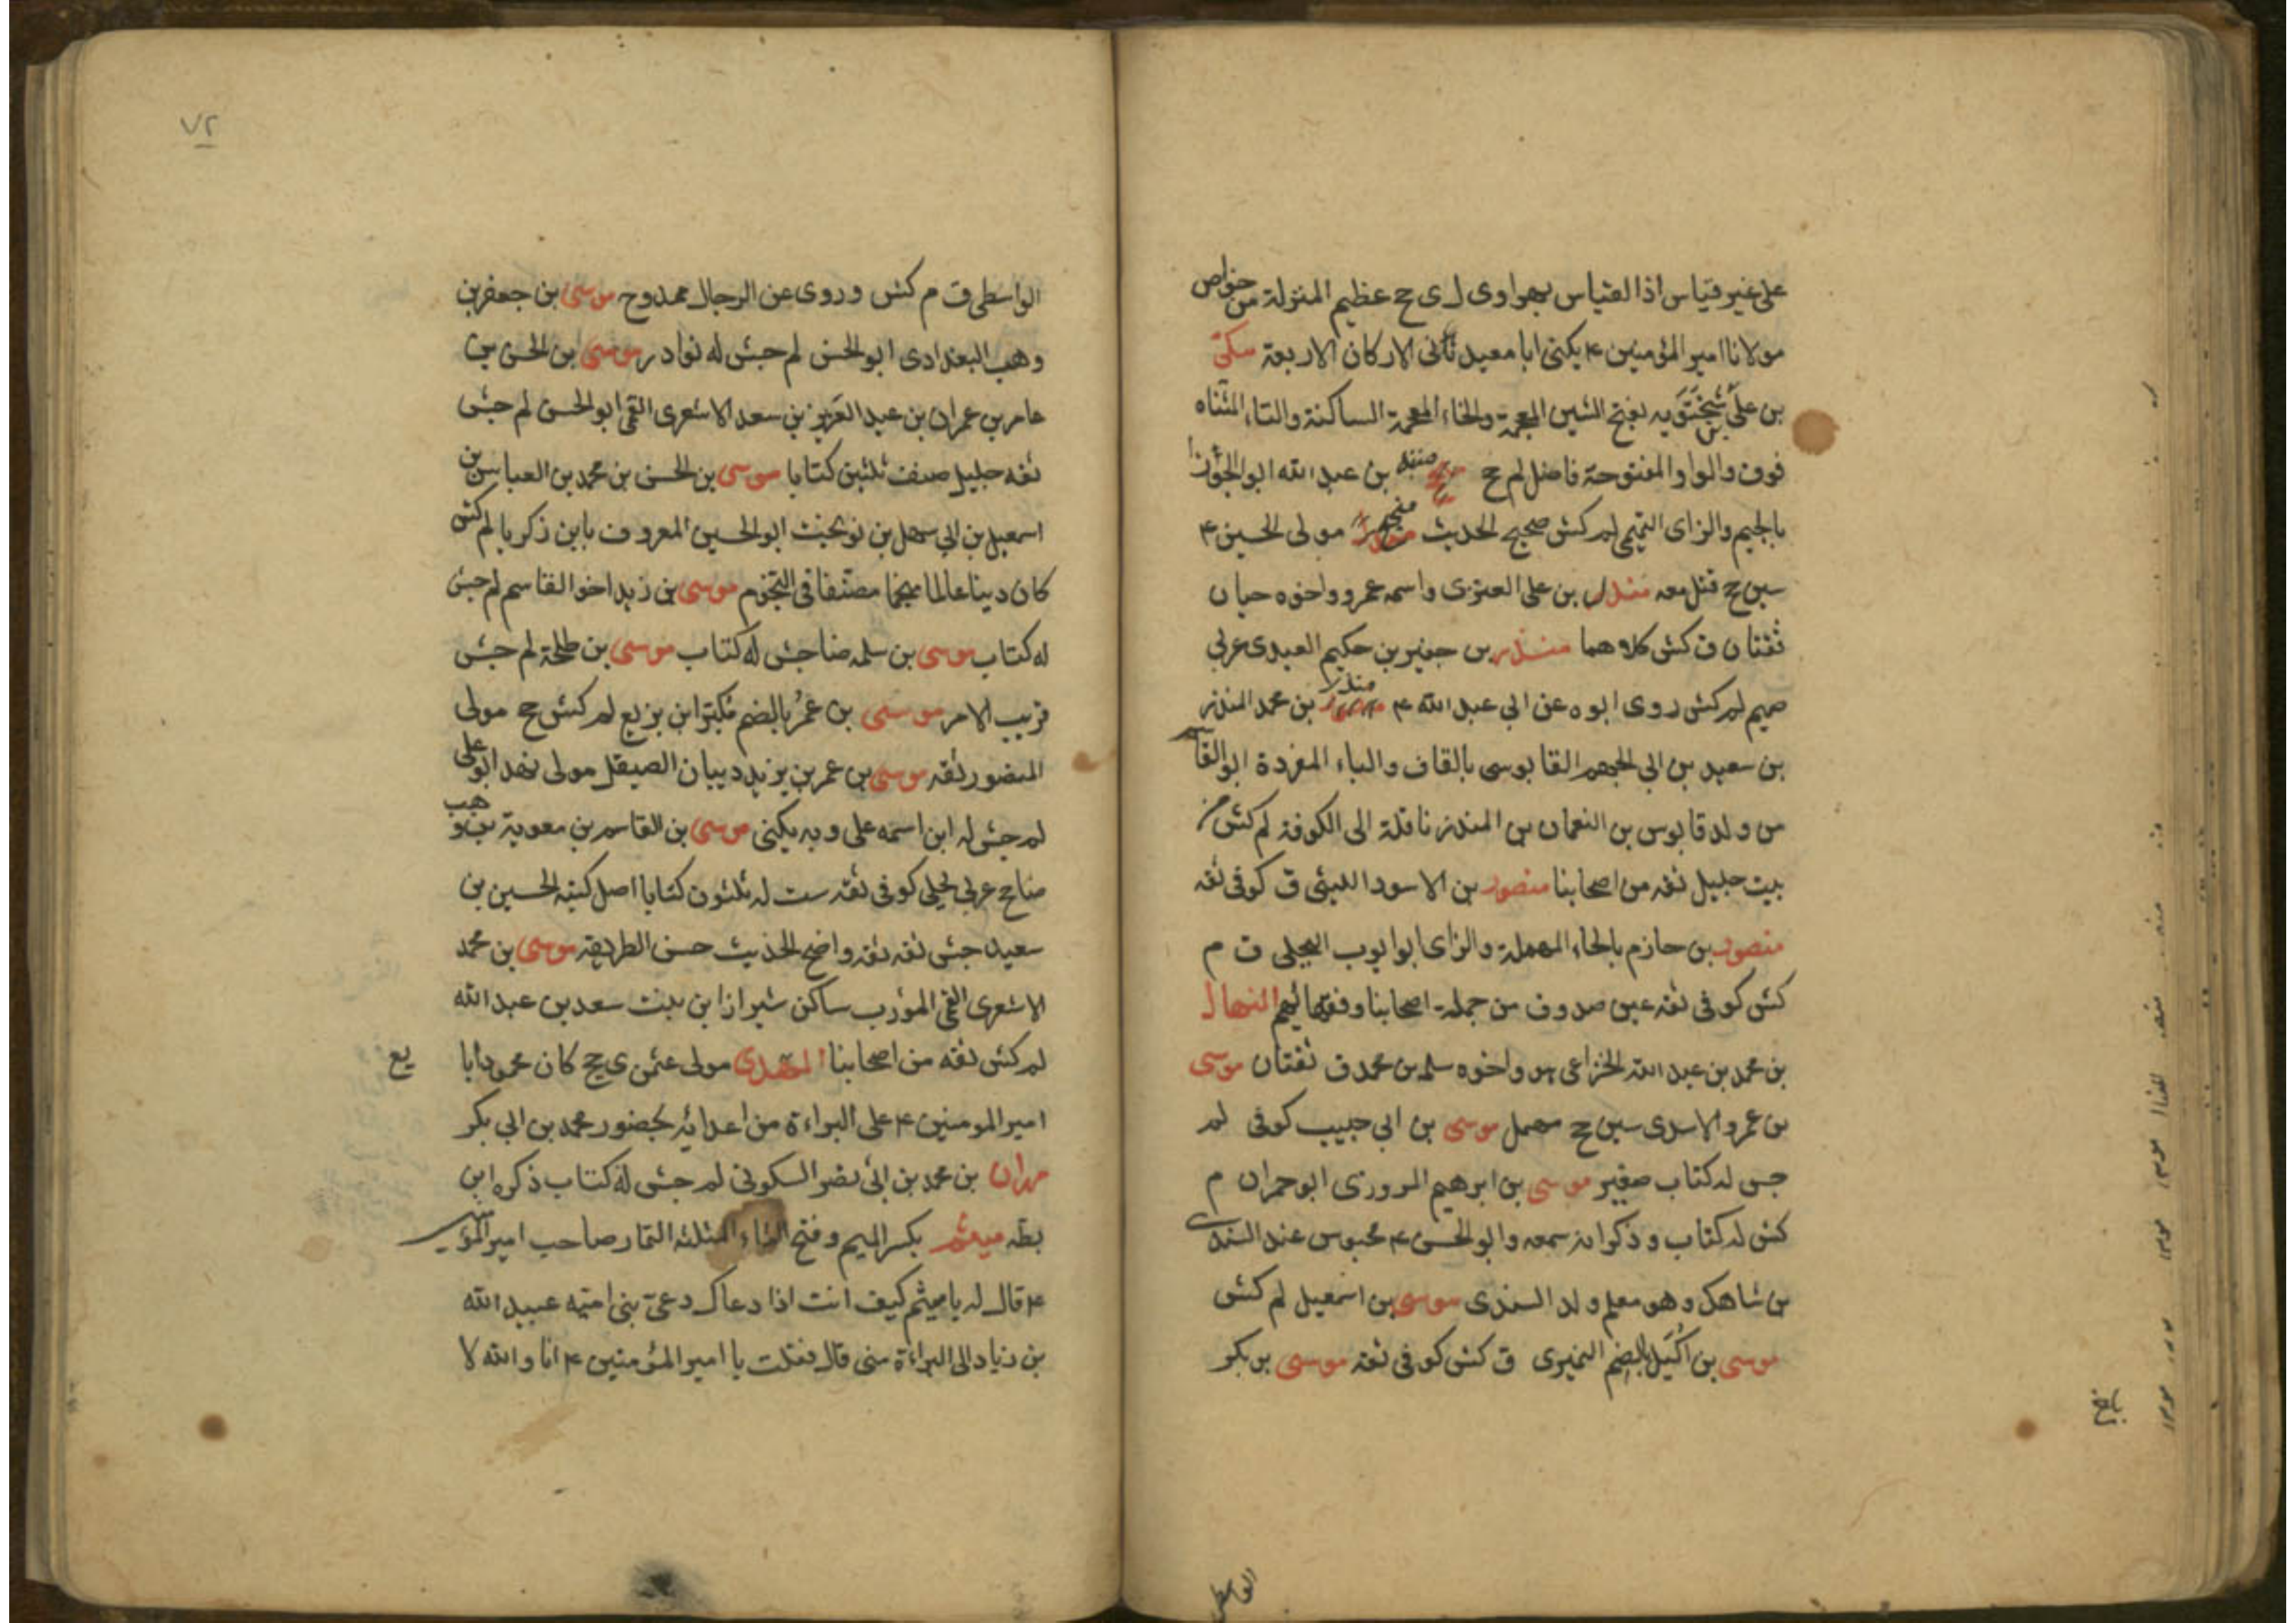 على غير قياس اذ القياس بهراوى ل ى جخ عظيم المنزلة من خواص
مولانا امير المؤمنين ٤ يكنى ابا معبد ثانى الاركان الاربعة
بن على بن شختويه بفتح الشين المعجمة والخاء المعجمة الساكنة والتاء المثناه
فوق والواو المفتوحة فاضل لم جخ منبه بن عبد الله ابو الجوزا
بالجيم والزاى التميمى لم كش صحيح الحديث منجح مولى الحسين ٤
سين جخ قتل معه مندل بن على العنزى واسمه عمرو واخوه حيان
ثقتان ق كش كلاهما منذر بن جفير بن حكيم العبدى عربى
صميم لم كش روى ابوه عن ابى عبد الله ٤ منذر بن محمد المنذر
بن سعيد بن ابى الجهم القابوسى بالقاف والباء المفردة ابو القاسم
من ولد قابوس بن النعمان بن المنذر ناقلة الى الكوفة لم كش من
بيت جليل ثقه من اصحابنا منصور بن الاسود الليثى ق كوفى ثقه
منصور بن حازم بالحاء المهملة والزاى ابو ايوب البجلى ق م
كش كوفى ثقه عين صدوق من جملة اصحابنا وفقهائهم المنهال
بن محمد بن عبد الله الخزاعى هو واخوه سلم بن محمد ق ثقتان موسى
بن عمرو الاسدى سين جخ مهمل موسى بن ابى حبيب كوفى لم
جش له كتاب صغير موسى بن ابرهيم المروزى ابو حمران م
كش له كتاب وذكر انه سمعه وابو الحسن ٤ محبوس عند السندى
بن شاهك وهو معلم ولد السندى موسى بن اسمعيل لم كش
موسى بن اكيل بالضم النميرى ق كش كوفى ثقه موسى بن بكر
الواسطى
٧٢
الواسطى ق م كش وروى عن الرجال ممدوح موسى بن جعفر بن
وهب البغدادى ابو الحسن لم جش له نوادر موسى ابن الحسن بن
عامر بن عمران بن عبد العزيز بن سعد الاشعرى القمى ابو الحسن لم جش
ثقه جليل صنف ثلثين كتابا موسى بن الحسن بن محمد بن العباس بن
اسمعيل بن ابى سهل بن نوبخت ابو الحسين المعروف بابن ذكريا لم كش
كان دينا عالما منجما مصنفا فى النجوم موسى بن زيد اخو القاسم لم جش
له كتاب موسى بن سلمه ضا جش له كتاب موسى بن طلحة لم جش
قريب الامر موسى بن عمر بالضم مكبرا بن بزيع لم كش جخ مولى
المنصور ثقه موسى بن عمر بن يزيد ذبيان الصيقل مولى نهد ابو على
لم جش له ابن اسمه على وبه يكنى موسى بن القاسم بن معوية بن وهب
ضا جخ عربى بجلى كوفى ثقه ست له ثلثون كتابا اصل كتبه الحسين بن
سعيد جش ثقه ثقه واضح الحديث حسن الطريقه موسى بن محمد
الاشعرى القمى المؤدب ساكن شيراز ابن بنت سعد بن عبد الله
لم كش ثقه من اصحابنا المهدى مولى عثمن ى جخ كان محمودا با يع
امير المومنين ٤ على البراءة من اعدائه بحضور محمد بن ابى بكر
مهران بن محمد بن ابى نصر السكونى لم جش له كتاب ذكره ابن
بطه ميثم بكسر الميم وفتح الثاء المثلثه التمار صاحب امير المؤمنين
٤ قال له يا ميثم كيف انت اذا دعاك دعى بنى اميه عبيد الله
بن زياد الى البراءة منى قال فقلت يا امير المؤمنين ٤ انا والله لا